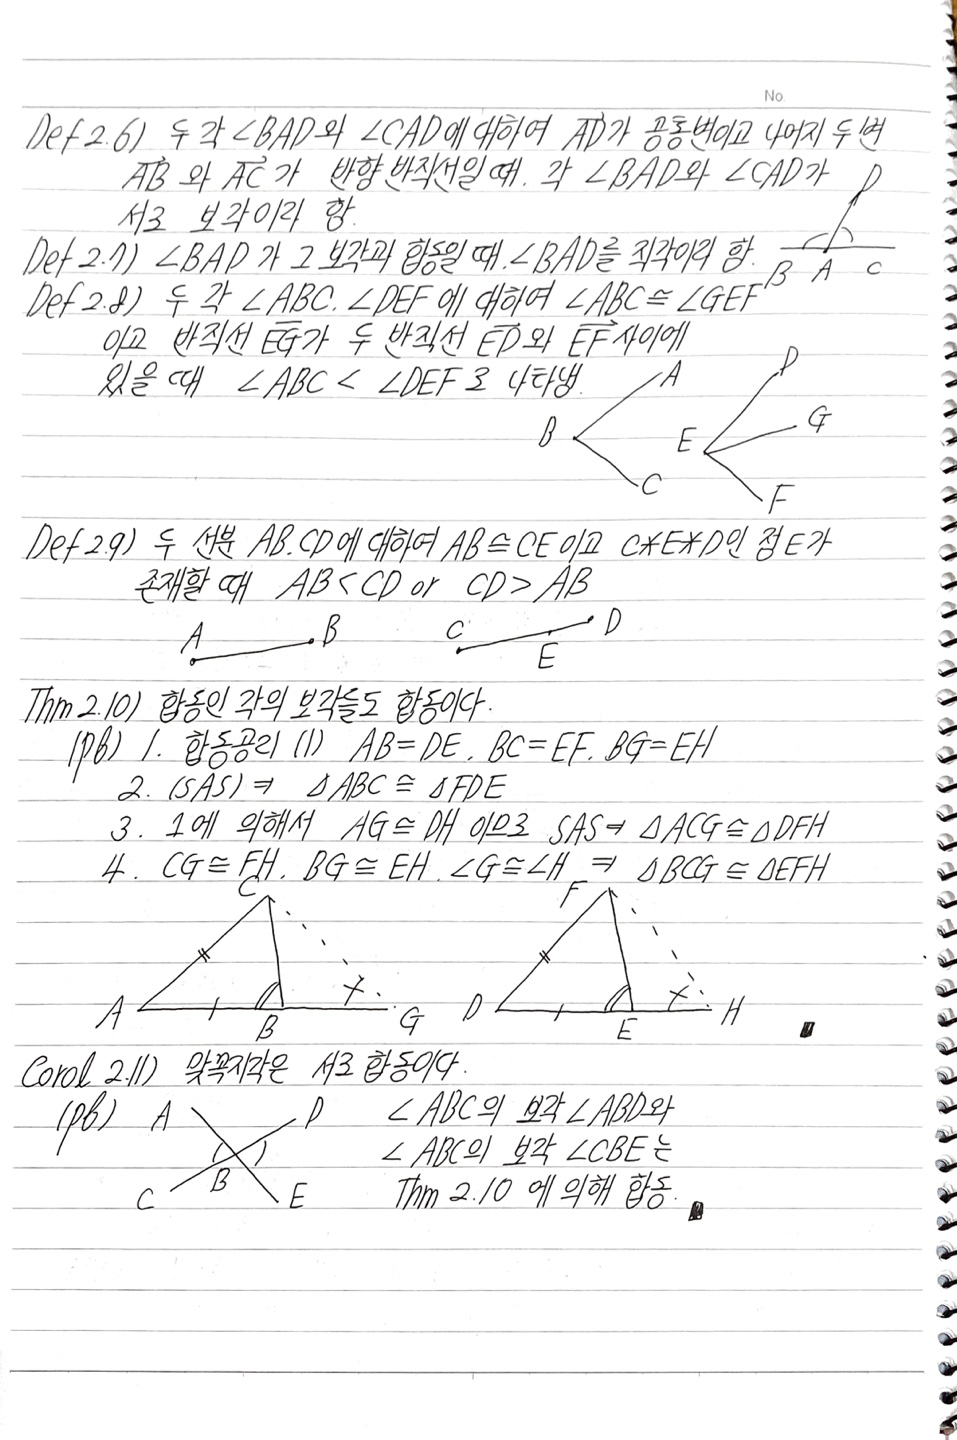 No.
Def 2.6) 두 각 ∠BAD와 ∠CAD에 대하여 AD가 공통변이고 나머지 두 변
AB 와 AC가 반향 반직선일 때. 각 ∠BAD와 ∠CAD가
서로 보각이라 함.
D
B A C
Def 2.7) ∠BAD가 그 보각과 합동일 때. ∠BAD를 직각이라 함.
Def 2.8) 두 각 ∠ABC. ∠DEF에 대하여 ∠ABC≅∠GEF
이고 반직선 EG가 두 반직선 ED와 EF사이에
있을 때 ∠ABC < ∠DEF로 나타냄.
A
B
C
D
E G
F
Def 2.9) 두 선분 AB.CD에 대하여 AB≅CE이고 C*E*D인 점 E가
존재할 때 AB<CD or CD>AB
A B C D
E
Thm 2.10) 합동인 각의 보각들도 합동이다.
(pf) 1. 합동공리 (1) AB=DE. BC=EF. BG=EH
2. (SAS) ⇒ △ABC ≅ △FDE
3. 1에 의해서 AG≅DH 이므로 SAS⇒ △ACG≅△DFH
4. CG≅FH. BG≅EH. ∠G≅∠H ⇒ △BCG≅△EFH
C F
A B G D E H
Corol 2.11) 맞꼭지각은 서로 합동이다.
(pf) A D ∠ABC의 보각∠ABD와
B ∠ABC의 보각 ∠CBE는
C E Thm 2.10 에 의해 합동.